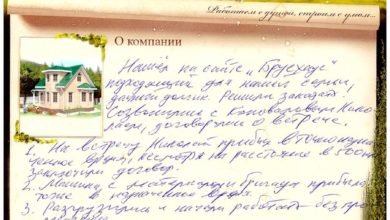 Работаем с душой, строим с умом...
О компании
Нашёл на сайте "Брусхауз"
подходящий для нашей семьи
дачный домик. Решили заказать!
Созвонились с Коноваловым Нико-
лаем, договорились о встрече.
1. На встречу Николай прибыл в точно назна-
ченное время, несмотря на расстояние в
заключили договор.
2. Машина с материалом и бригада прибыла
тоже в назначенное время.
3. Разгрузились и начали работать без про-